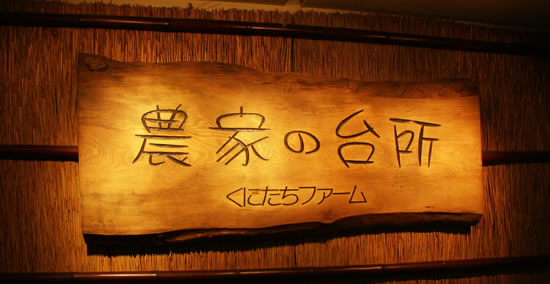 農家の台所
くにたちファーム